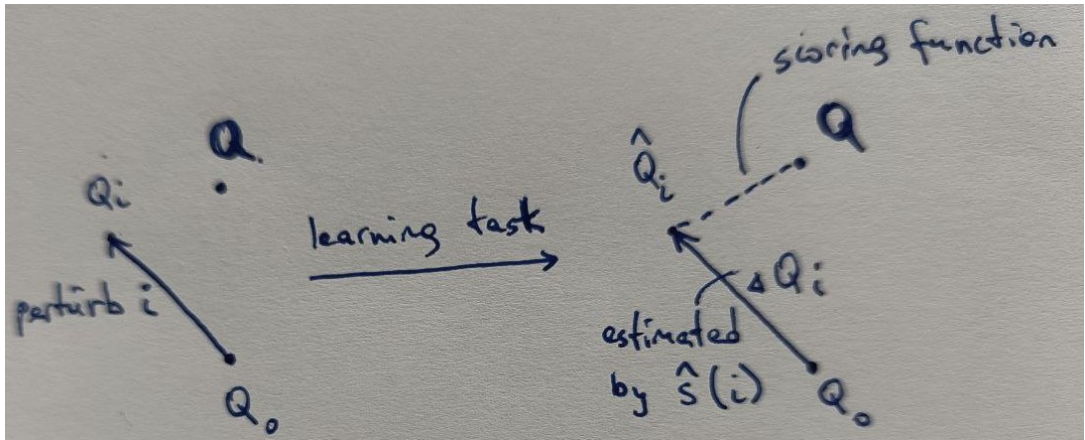 Q.
Qi
perturb i
Q₀
learning task
scoring function
Q
Q̂i
ΔQi
estimated
by ŝ(i)
Q₀